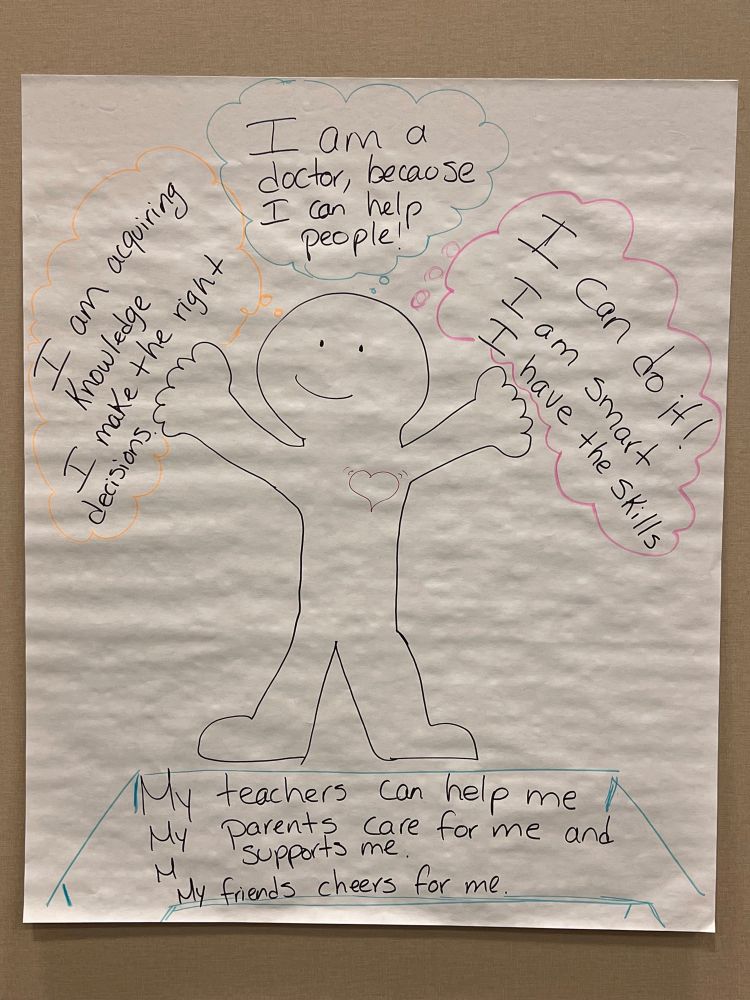 I am a
doctor, because
I can help
people!
I am acquiring
knowledge
I make the right
decisions.
I can do it!
I am smart
I have the skills
My teachers can help me
My parents care for me and
supports me.
M
My friends cheers for me.